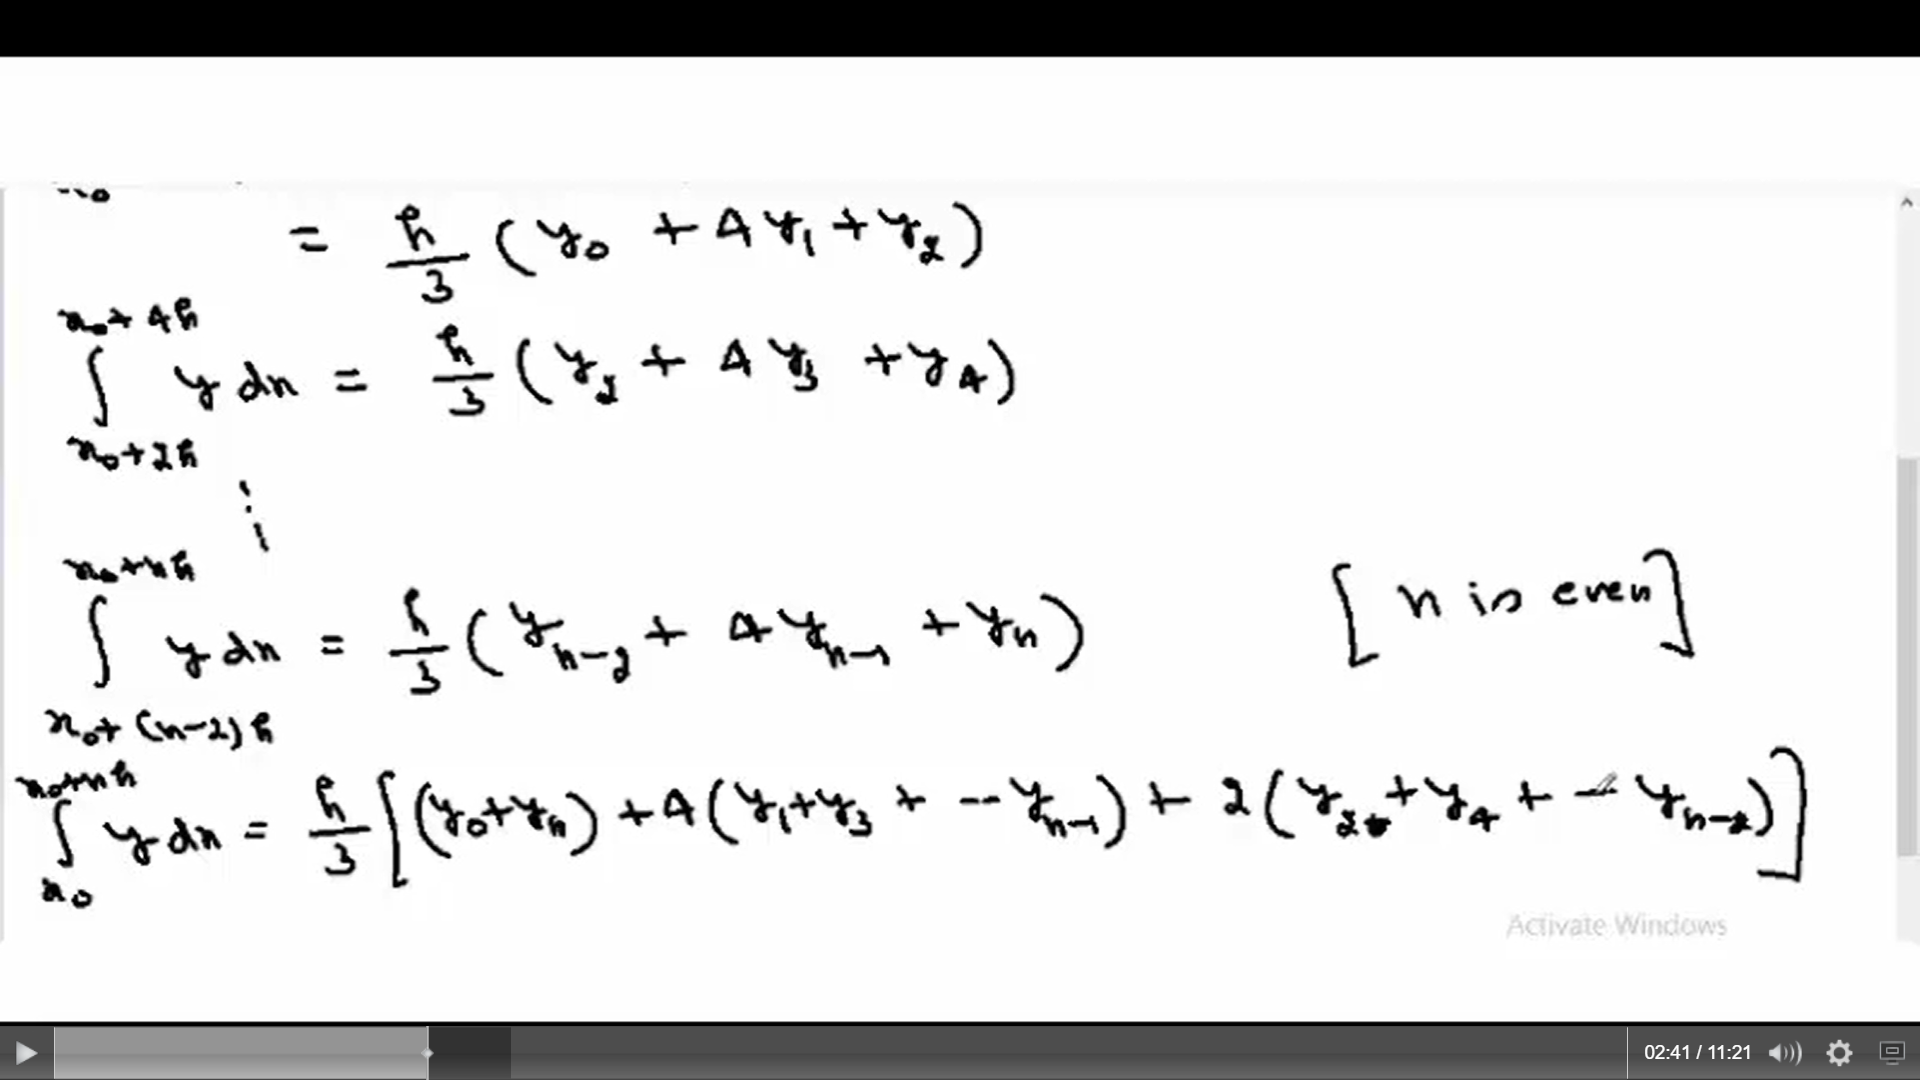 x₀
= h/3 (y₀ + 4y₁ + y₂)
x₀+4h
∫ y dx = h/3 (y₂ + 4y₃ + y₄)
x₀+2h
⋮
x₀+nh
∫ y dx = h/3 (yₙ₋₂ + 4yₙ₋₁ + yₙ) [n is even]
x₀+(n-2)h
x₀+nh
∫ y dx = h/3 [(y₀+yₙ) + 4(y₁+y₃ + -- yₙ₋₁) + 2(y₂+y₄ + -- yₙ₋₂)]
x₀
Activate Windows
02:41 / 11:21